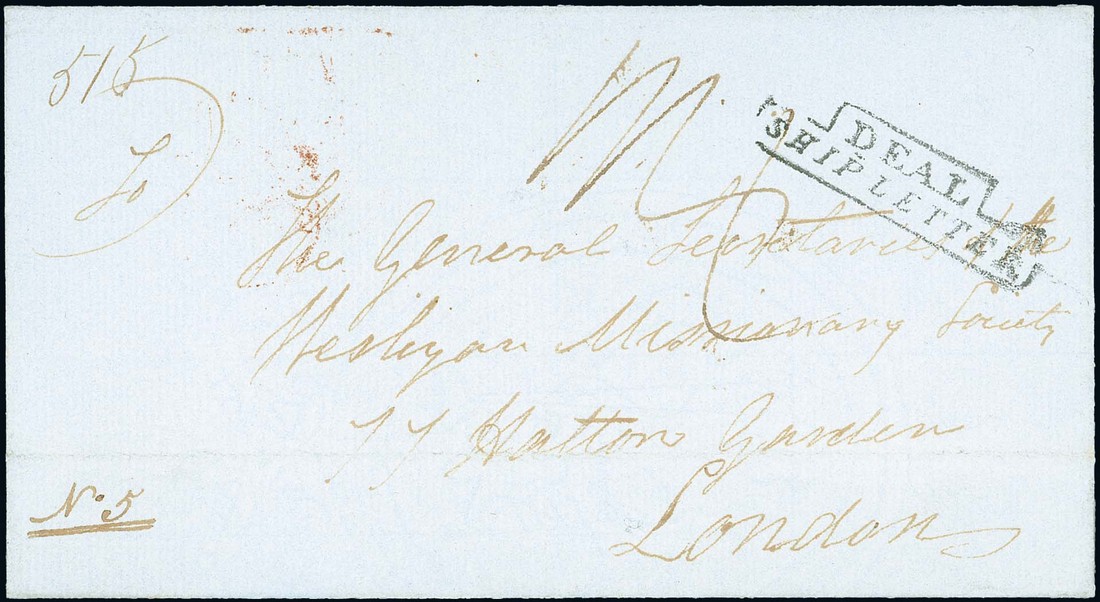 515
To
DEAL
SHIP LETTER
The General Secretaries of the
Wesleyan Missionary Society
77 Hatton Garden
London
No. 5